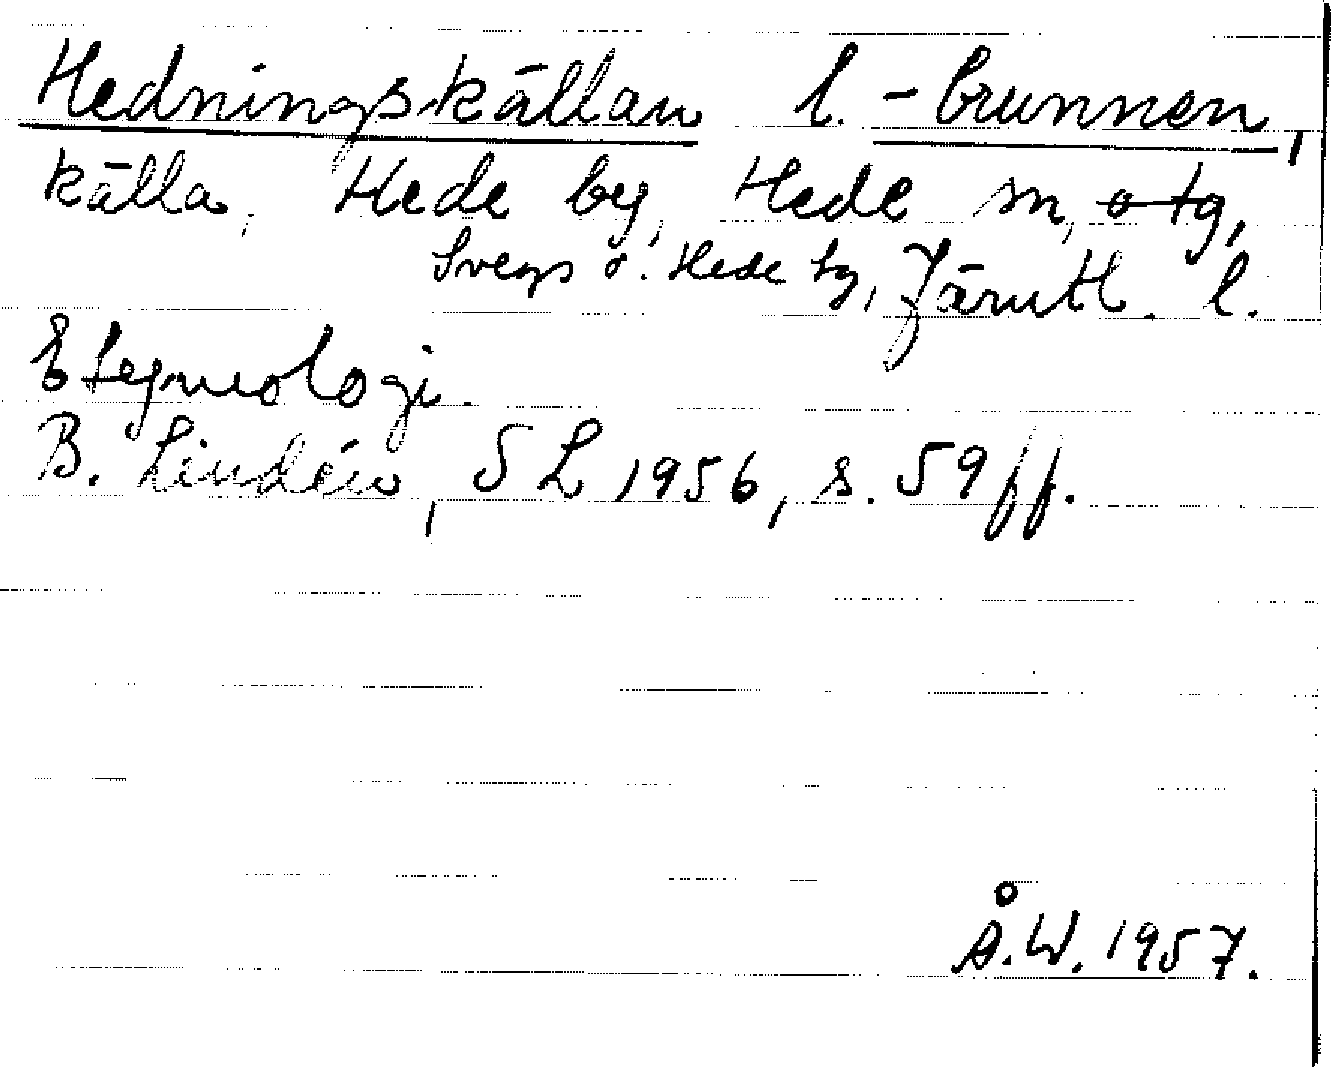 Hedningskällan l. -brunnen,
källa, Hede by, Hede sn, o tg,
Svegs o. Hede tg, Jämtl. l.
Etymologi.
B. Lindén, SL 1956, s. 59 ff.
Å.W. 1957.